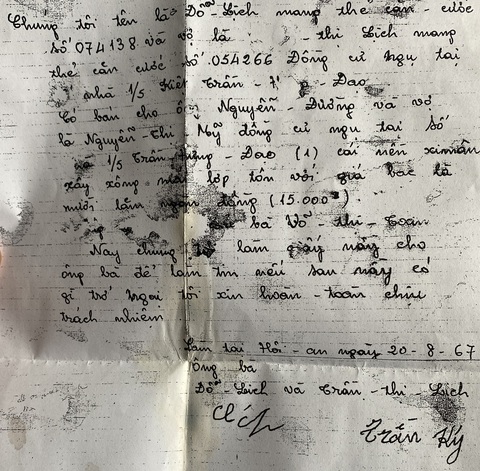 Chúng tôi tên là Đỗ - Lích mang thẻ căn - cước
số 074138 và vợ là - thi Lích mang
thẻ căn cước số 054266 Đồng cư ngụ tại
nhà 1/5 Kiệt Trần - - Đạo
Có bán cho ô Nguyễn - Dương và vợ
là Nguyễn - Thi Mỹ đồng cư ngụ tại số
1/5 Trần - Hưng - Đạo (1) cái nền ximăn
xây xông lớp tôn với giá bạc là
mười lăm ngàn đồng (15.000đ)
bà Võ - thi - Toan
Nay chúng tôi làm giấy này cho
ông bà để làm tin nếu sau này có
gì trở ngại tôi xin hoàn - toàn chịu
trách nhiệm
Làm tại Hội - an ngày 20-8-67
Ông bà
Đỗ - Lích và Trần - thi - Lích
Lích Trần Ký